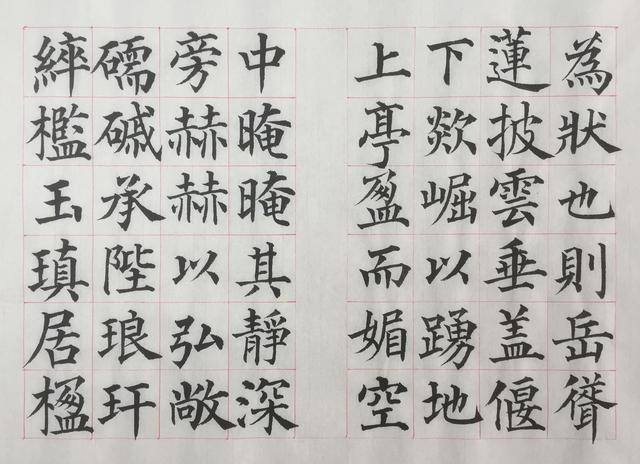 為狀也則岳聳
蓮披雲垂盖偃
下欻崛以踴地
上亭盈而媚空
中晻晻其靜深
旁赫赫以弘敞
礝磩承陛琅玕
綷檻玉瑱居楹